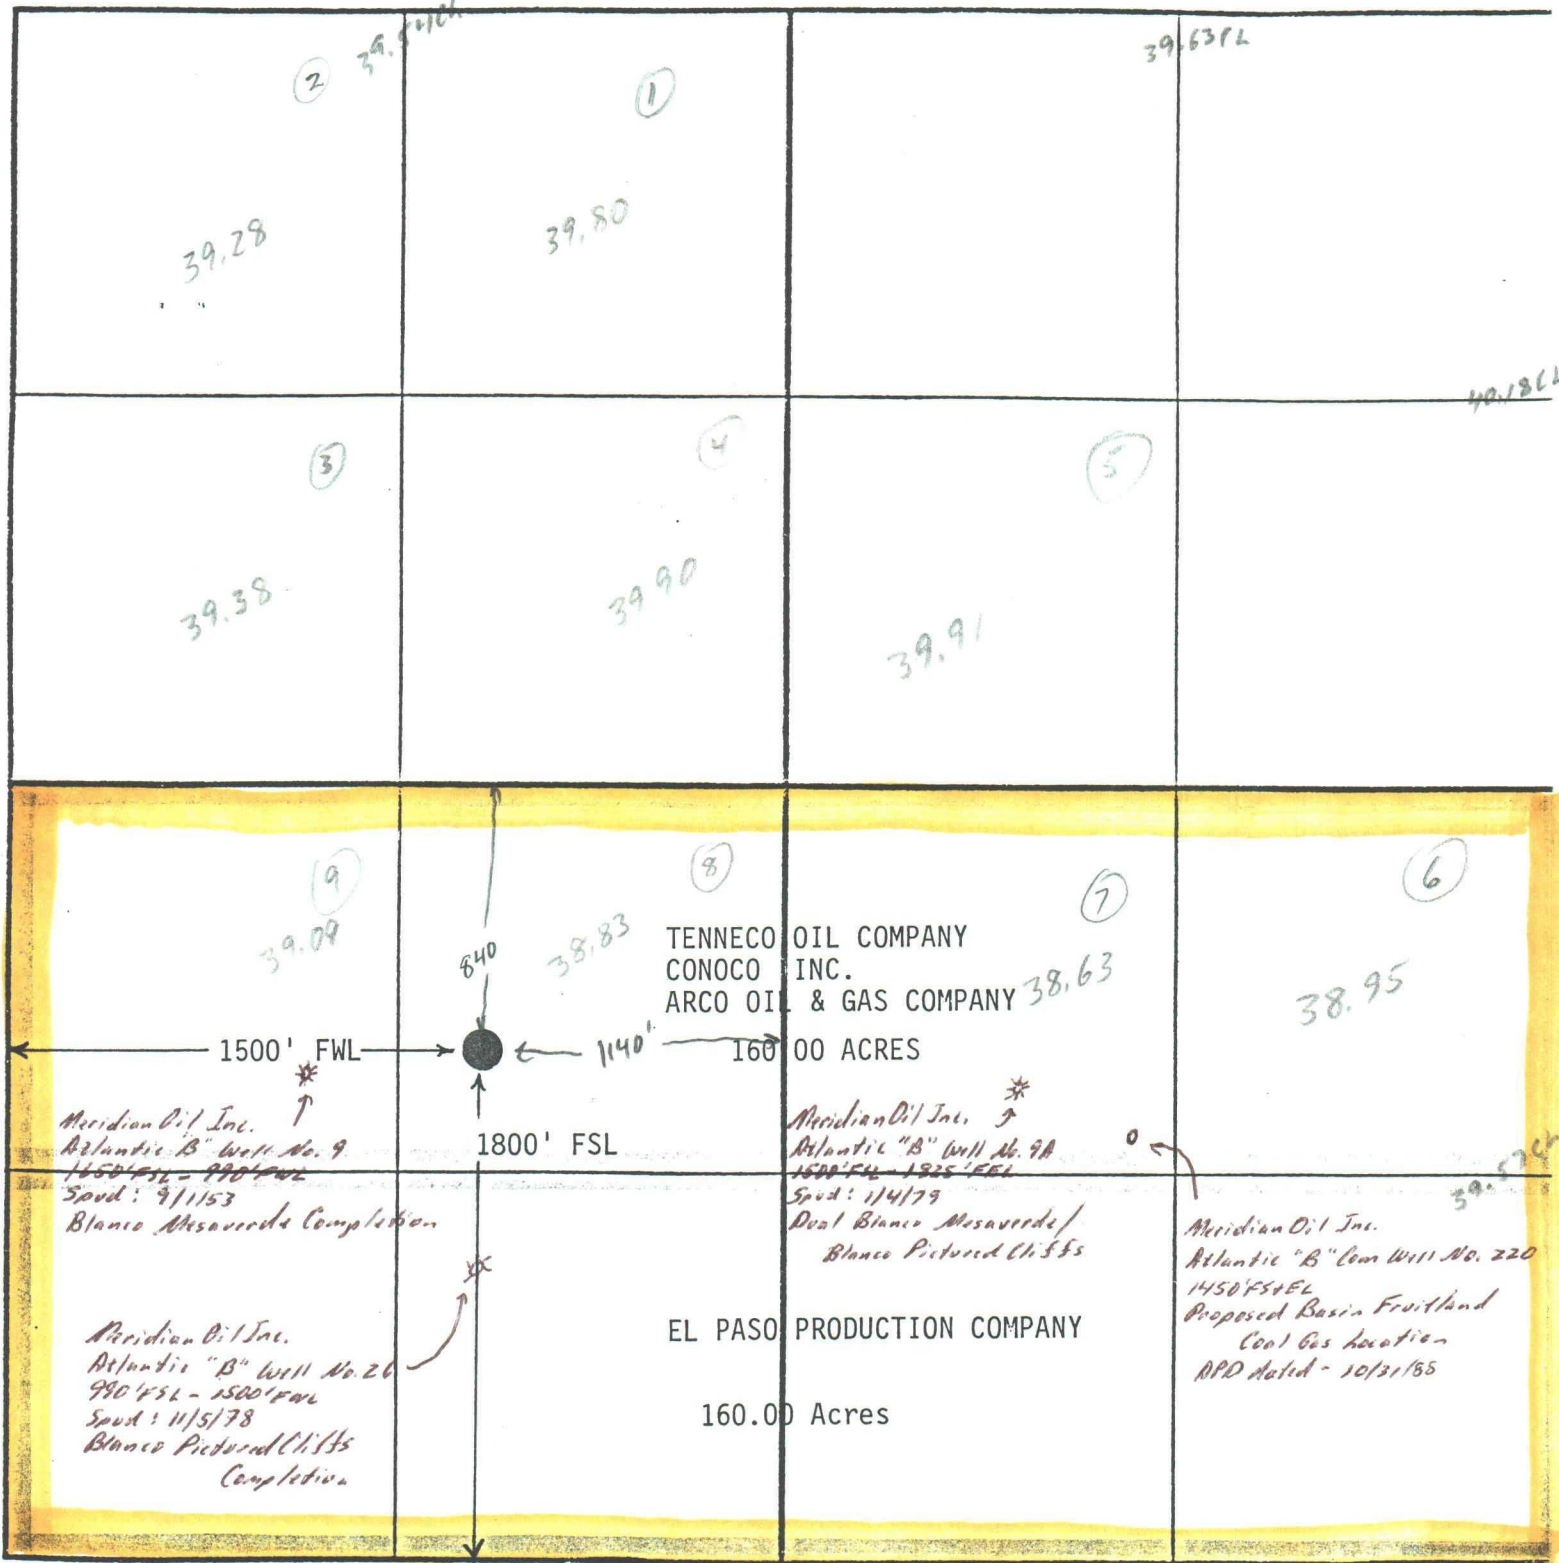 39.63 CL
②
①
39.28
39.80
40.18 CL
③
④
⑤
39.38
39.90
39.91
⑨
⑧
⑦
⑥
39.09
840
38.83
38.63
38.95
TENNECO OIL COMPANY
CONOCO INC.
ARCO OIL & GAS COMPANY
1500' FWL
1140'
160.00 ACRES
1800' FSL
Meridian Oil Inc.
Atlantic "B" Well No. 9
1650'FSL - 990'FWL
Spud: 9/1/53
Blanco Mesaverde Completion
Meridian Oil Inc.
Atlantic "B" Well No. 9A
1500'FSL - 1825'FEL
Spud: 1/4/79
Dual Blanco Mesaverde/
Blanco Pictured Cliffs
Meridian Oil Inc.
Atlantic "B" Com Well No. 220
1450'FS+EL
Proposed Basin Fruitland
Coal Gas Location
APD dated - 10/31/88
Meridian Oil Inc.
Atlantic "B" Well No. 26
990'FSL - 1500'FWL
Spud: 11/5/78
Blanco Pictured Cliffs
Completion
EL PASO PRODUCTION COMPANY
160.00 Acres